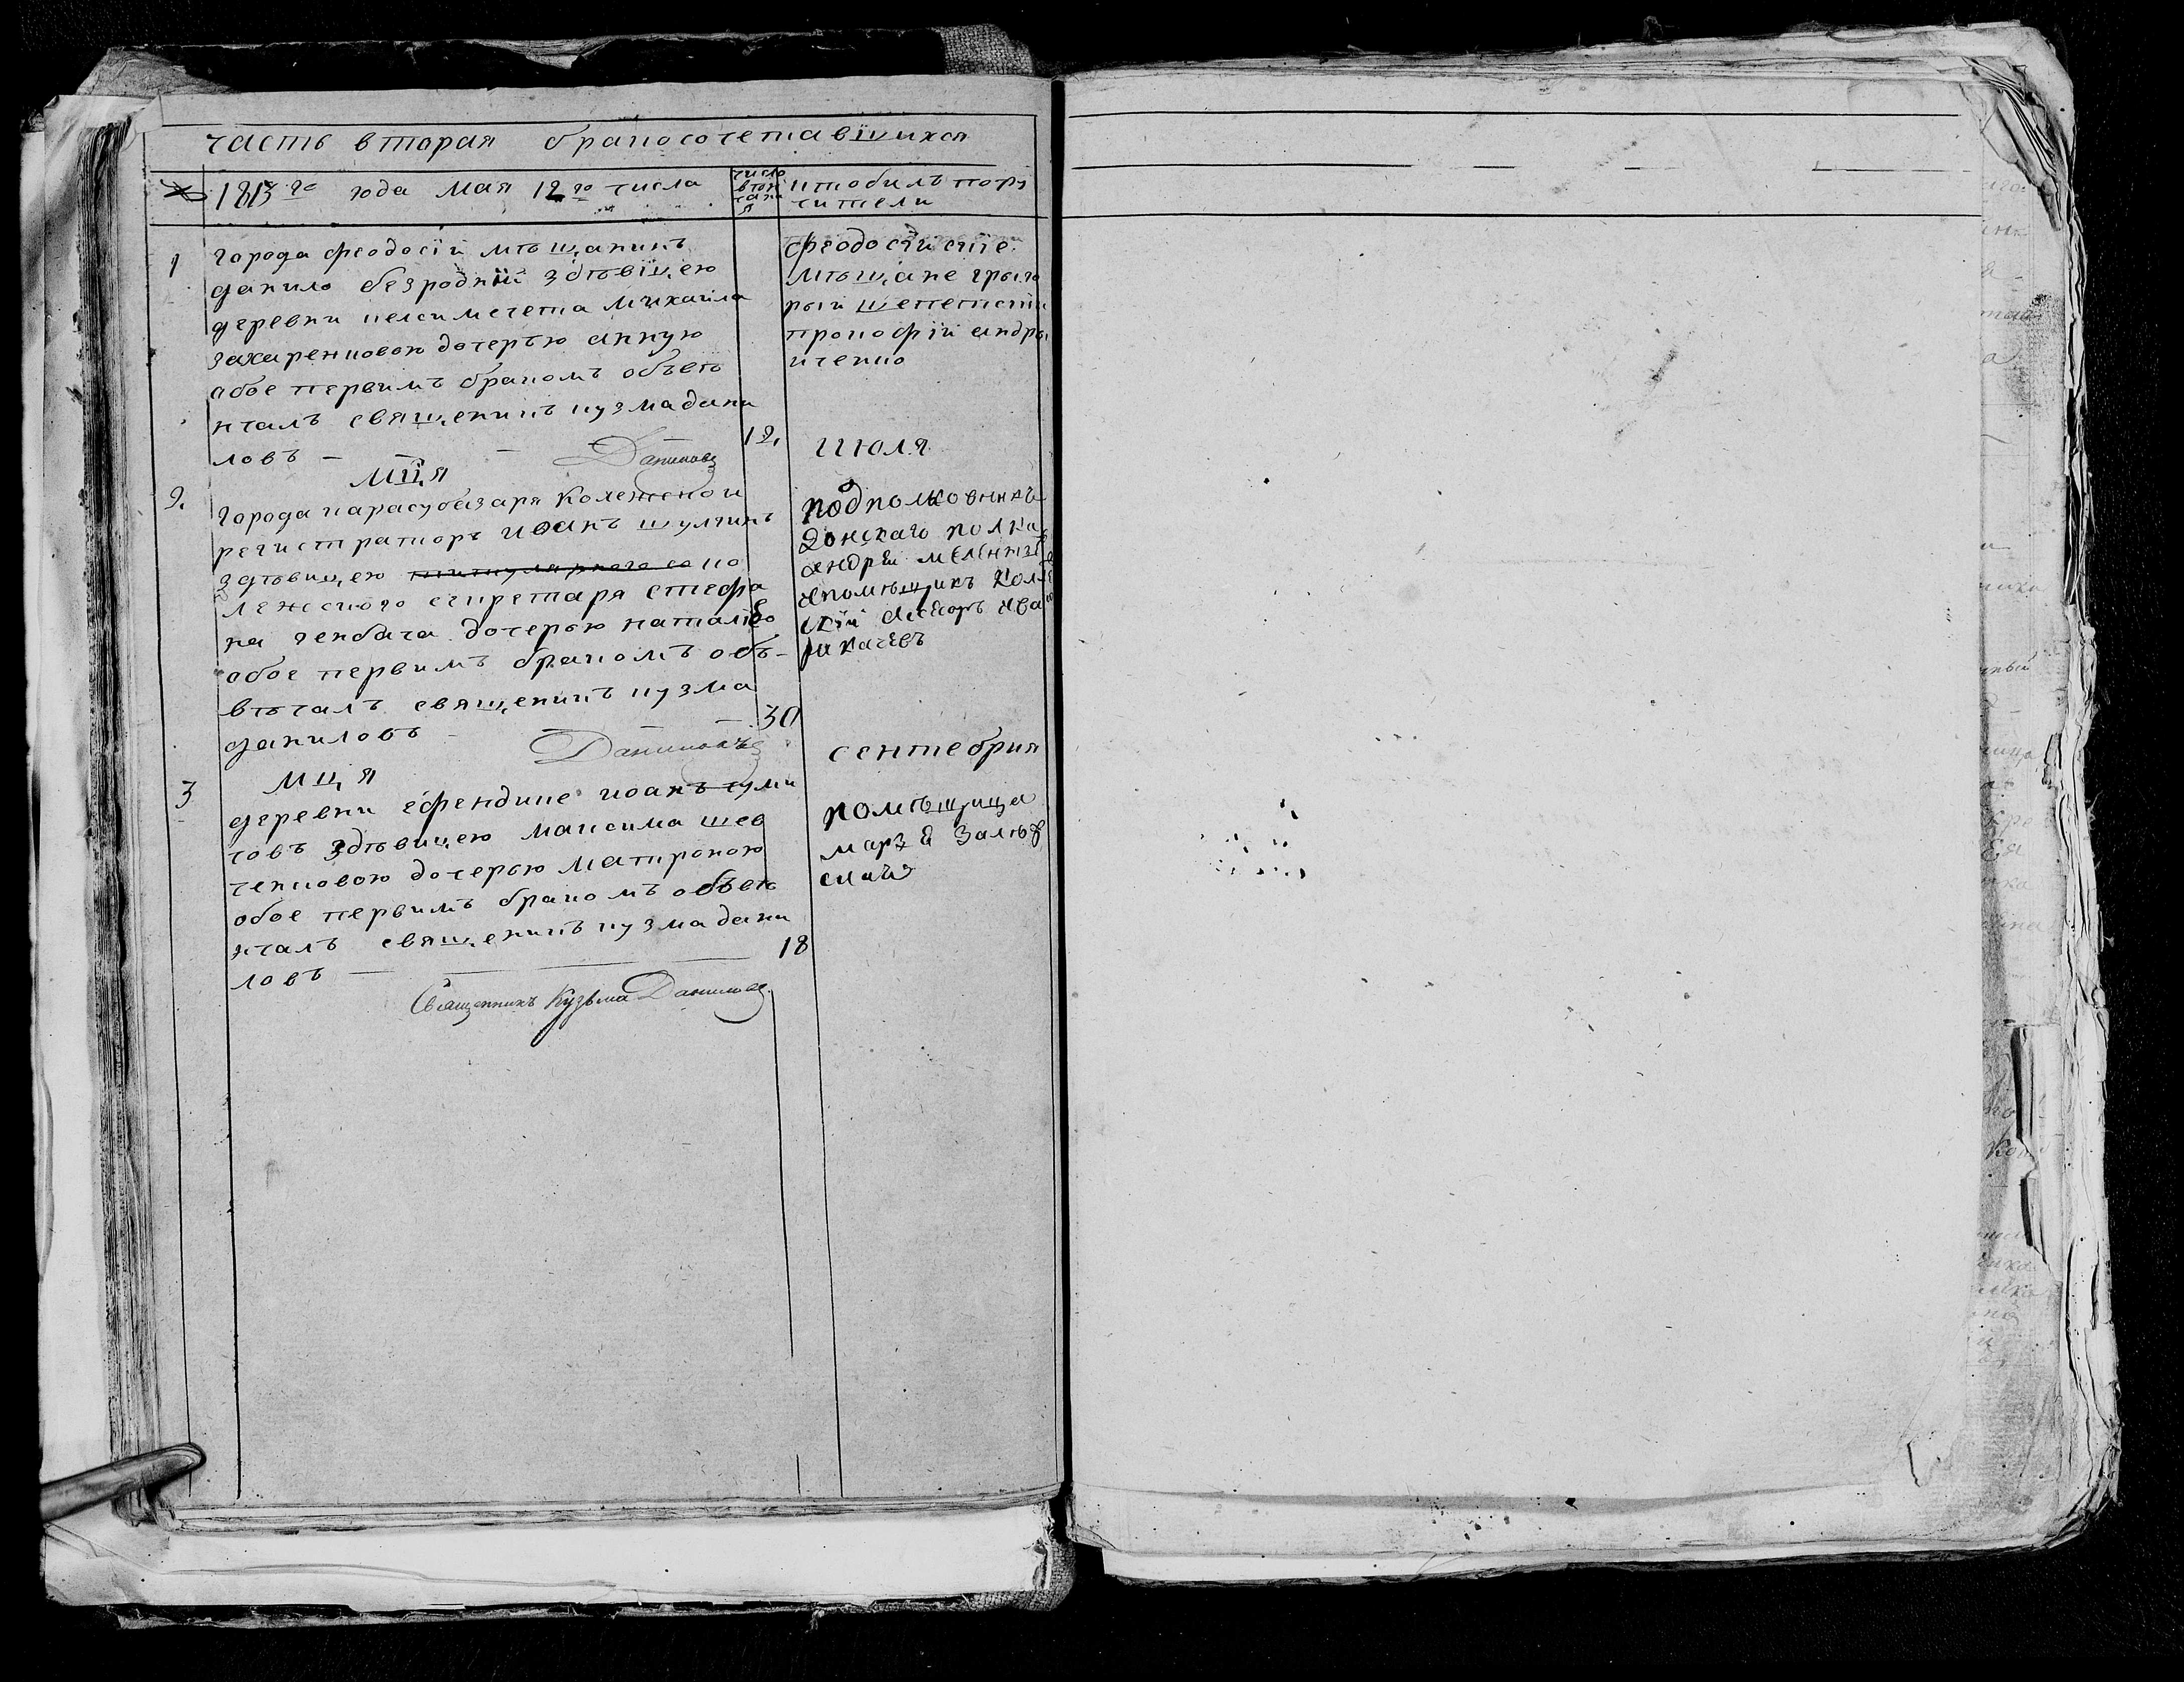 часть вторая бракосочетавшихся
1813го года мая 12го числа
число
венч
чани
я
кто былъ пору
чители
1
города феодосіи мѣщанинъ
данило безродній здѣвіцею
деревни келсимечета михайла
захаренковою дочерью анную
обое первимъ бракомъ обвѣ
нчалъ священикъ кузма дани
ловъ — Даниловъ
12
феодосийскіе
мѣщане грыго
рый шепетскій
прокофій андры
иченко
мця июля
2
города карасубазаря колежской
регистраторъ иванъ шулгинъ
здѣвицею титулярного со ко
лежского секретаря стефа
на генбача дочерью наталіею
обое первимъ бракомъ объ-
вѣчалъ священикъ кузма
даниловъ Даниловъ
30
подполковникъ
донскаго полка
андрей
ипомѣщикъ кол
скій асесоръ ива
качевъ
мця сентебрия
3
деревни ефендике иоанъ куми
човъ здѣвицею максима шев
ченковою дочерью матироною
обое первимъ бракомъ обвѣ
нчалъ священикъ кузма дани
ловъ —
18
помѣщица
скаи
Священникъ Кузьма Даниловъ